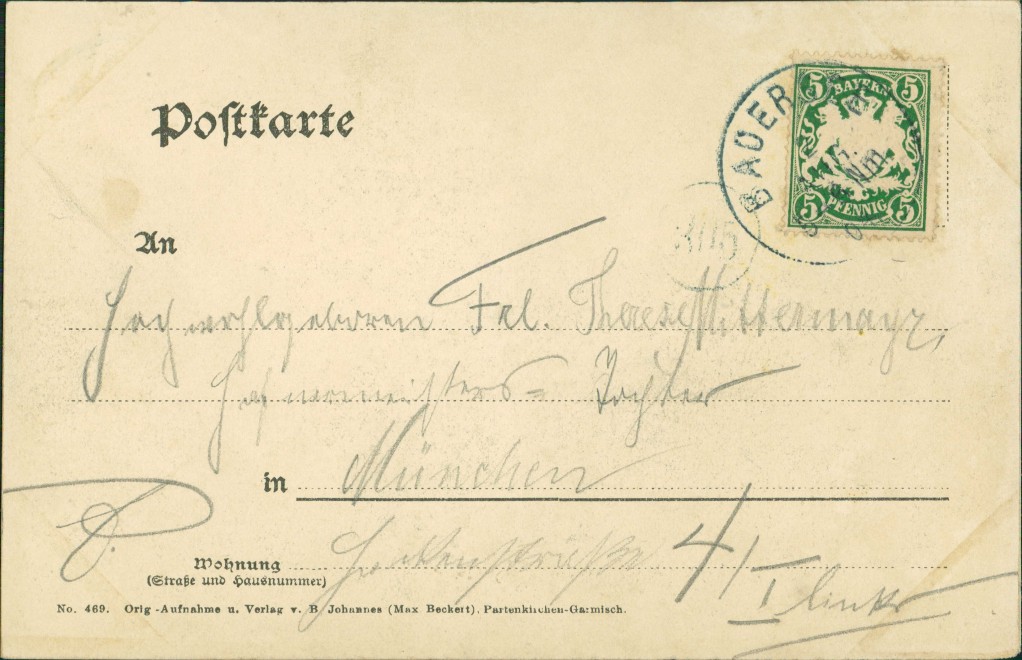 Postkarte
5 BAYERN 5
5 PFENNIG 5
BAUER
Nm
An
Hochwohlgeboren Frl. Therese Mittermayr,
Hafnermeisters= Tochter
in München
P.
Wohnung
(Straße und Hausnummer)
4/I links
No. 469. Orig.-Aufnahme u. Verlag v. B. Johannes (Max Beckert), Partenkirchen-Garmisch.